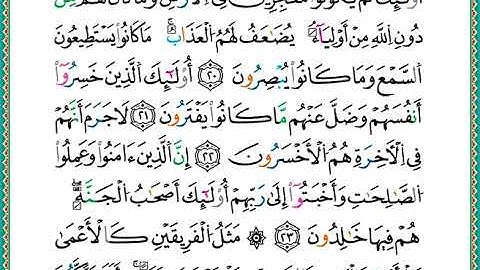 أُوْلَٰٓئِكَ لَمۡ يَكُونُواْ مُعۡجِزِينَ فِي ٱلۡأَرۡضِ وَمَا كَانَ لَهُم مِّن
دُونِ ٱللَّهِ مِنۡ أَوۡلِيَآءَۘ يُضَٰعَفُ لَهُمُ ٱلۡعَذَابُۚ مَا كَانُواْ يَسۡتَطِيعُونَ
ٱلسَّمۡعَ وَمَا كَانُواْ يُبۡصِرُونَ ٢٠ أُوْلَٰٓئِكَ ٱلَّذِينَ خَسِرُوٓاْ
أَنفُسَهُمۡ وَضَلَّ عَنۡهُم مَّا كَانُواْ يَفۡتَرُونَ ٢١ لَا جَرَمَ أَنَّهُمۡ
فِي ٱلۡأٓخِرَةِ هُمُ ٱلۡأَخۡسَرُونَ ٢٢ إِنَّ ٱلَّذِينَ ءَامَنُواْ وَعَمِلُواْ
ٱلصَّٰلِحَٰتِ وَأَخۡبَتُوٓاْ إِلَىٰ رَبِّهِمۡ أُوْلَٰٓئِكَ أَصۡحَٰبُ ٱلۡجَنَّةِۖ
هُمۡ فِيهَا خَٰلِدُونَ ٢٣ ۞ مَثَلُ ٱلۡفَرِيقَيۡنِ كَٱلۡأَعۡمَىٰ